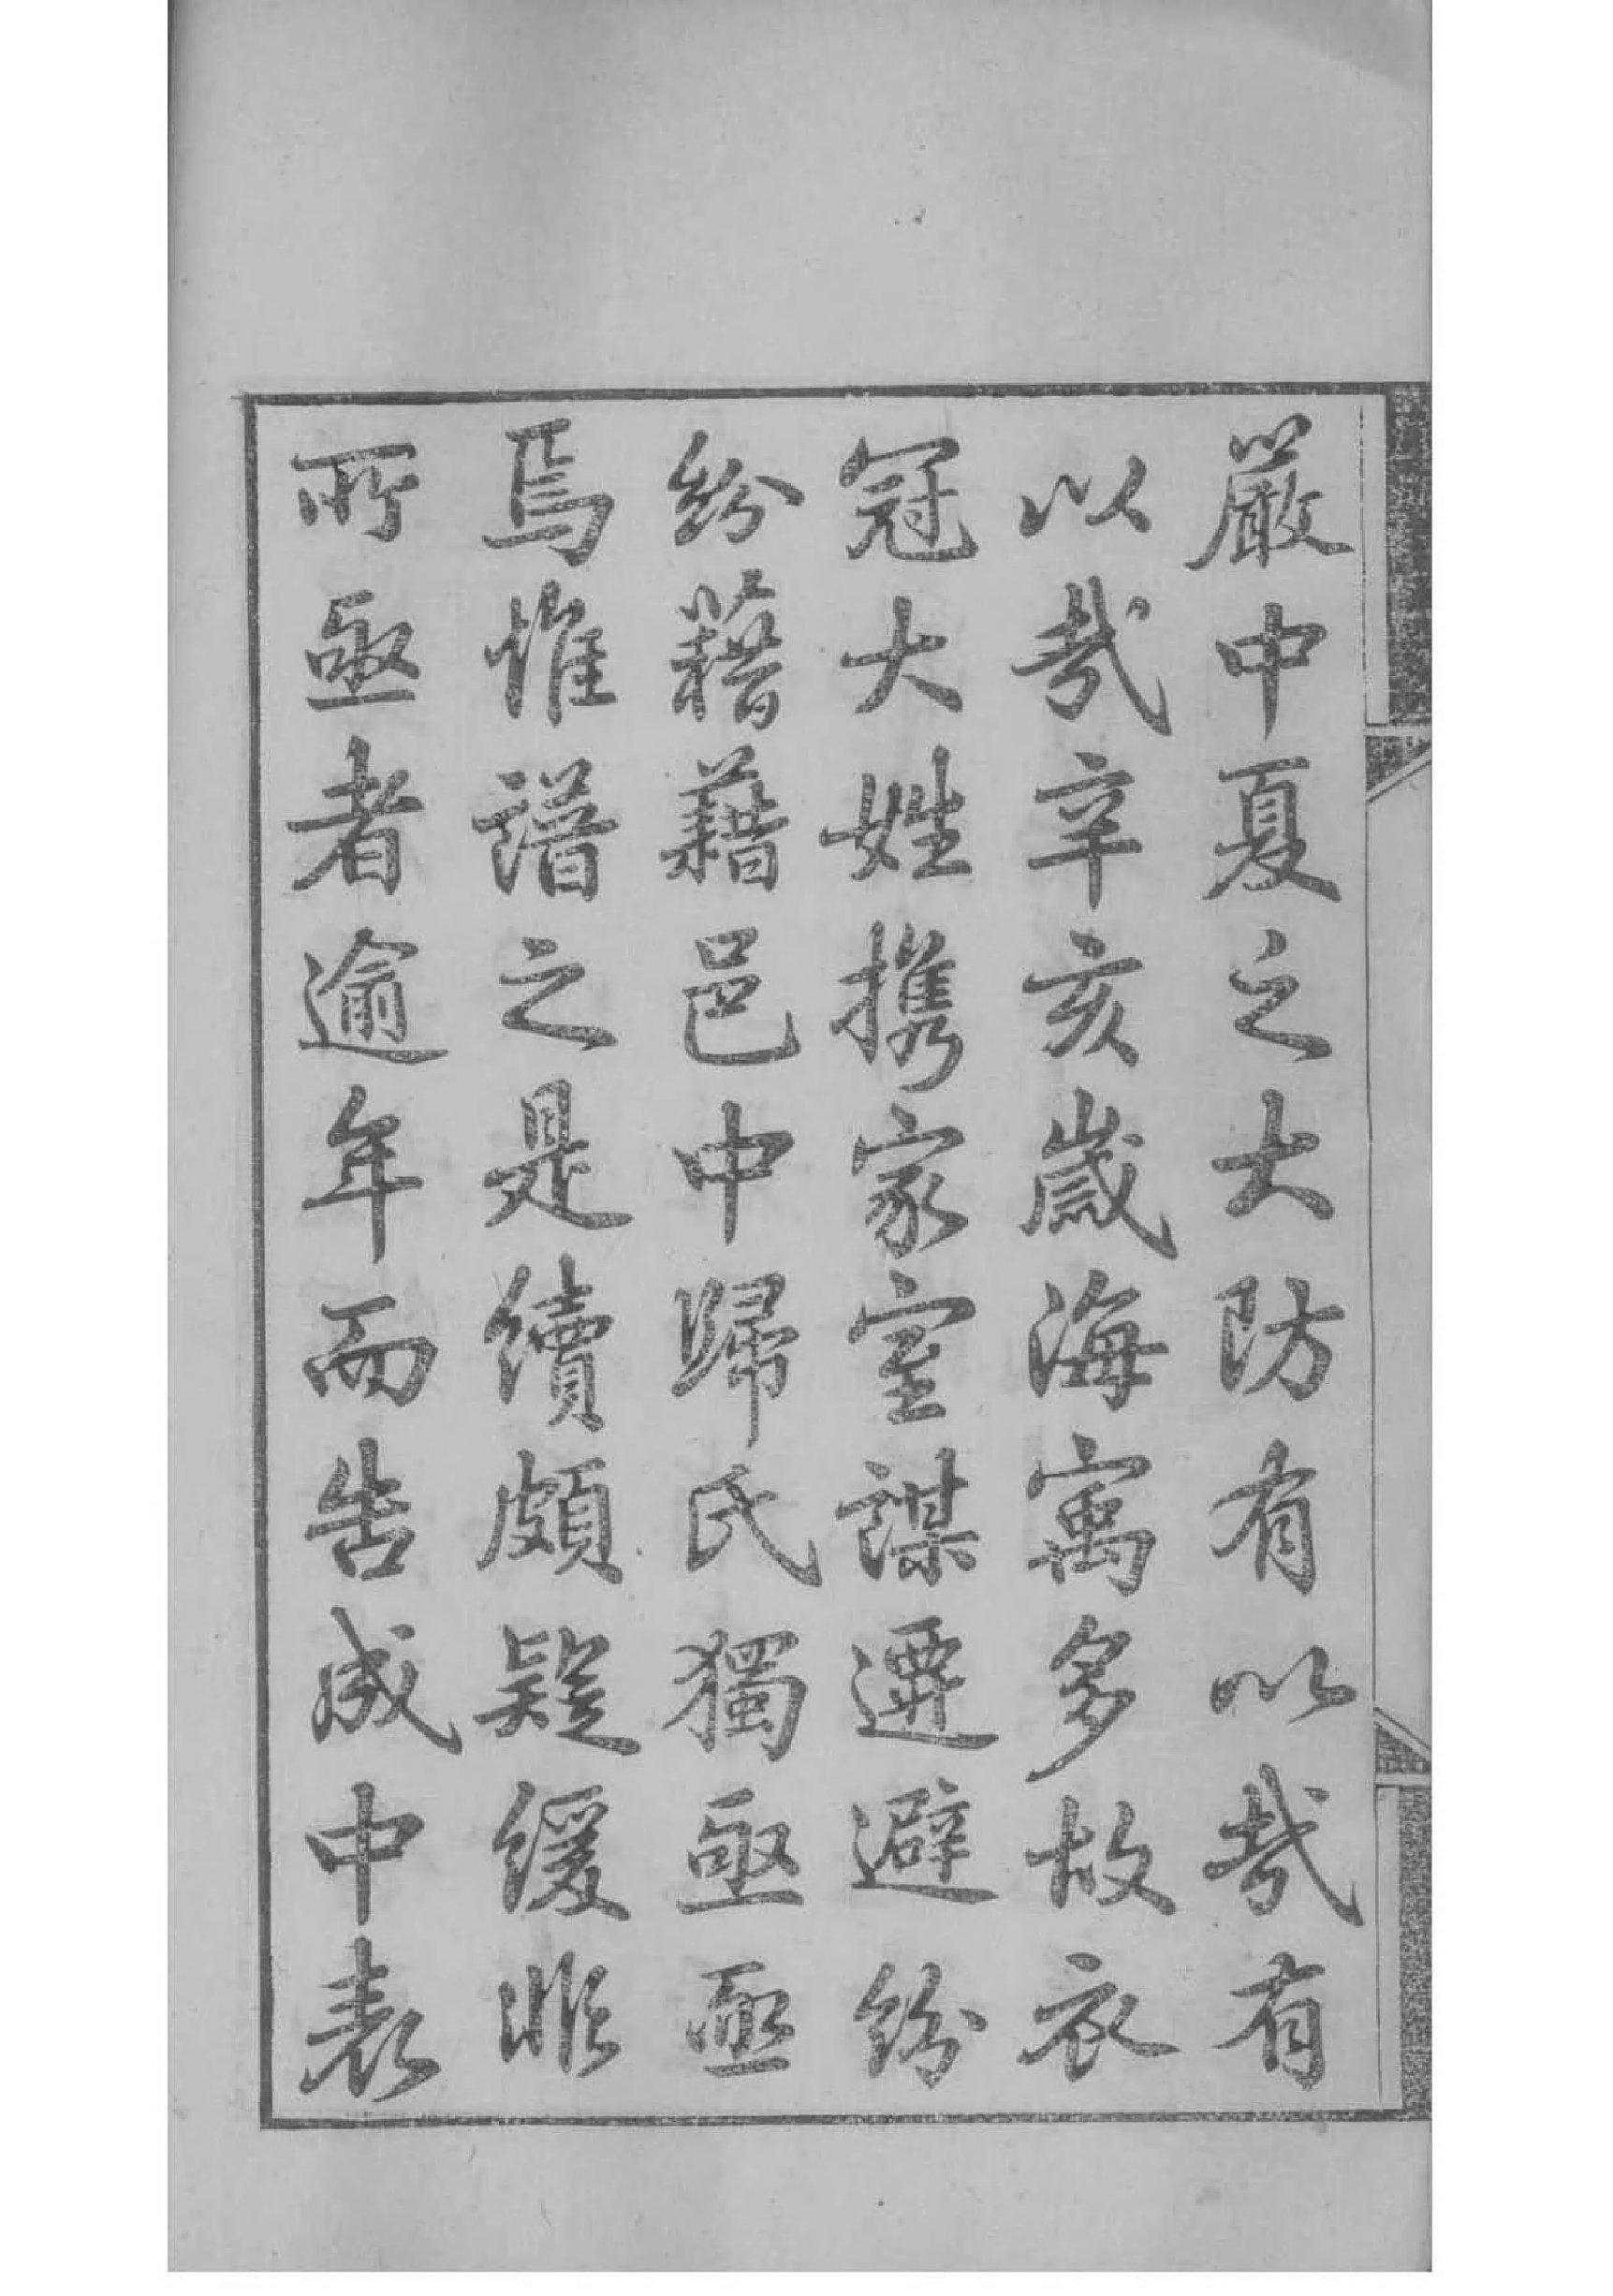 嚴中夏之大防有以哉有
以哉辛亥歲海寓多故衣
冠大姓携家室謀遷避紛
紛藉藉邑中歸氏獨亟亟
焉惟譜之是續頗疑緩非
所亟者逾年而告成中表